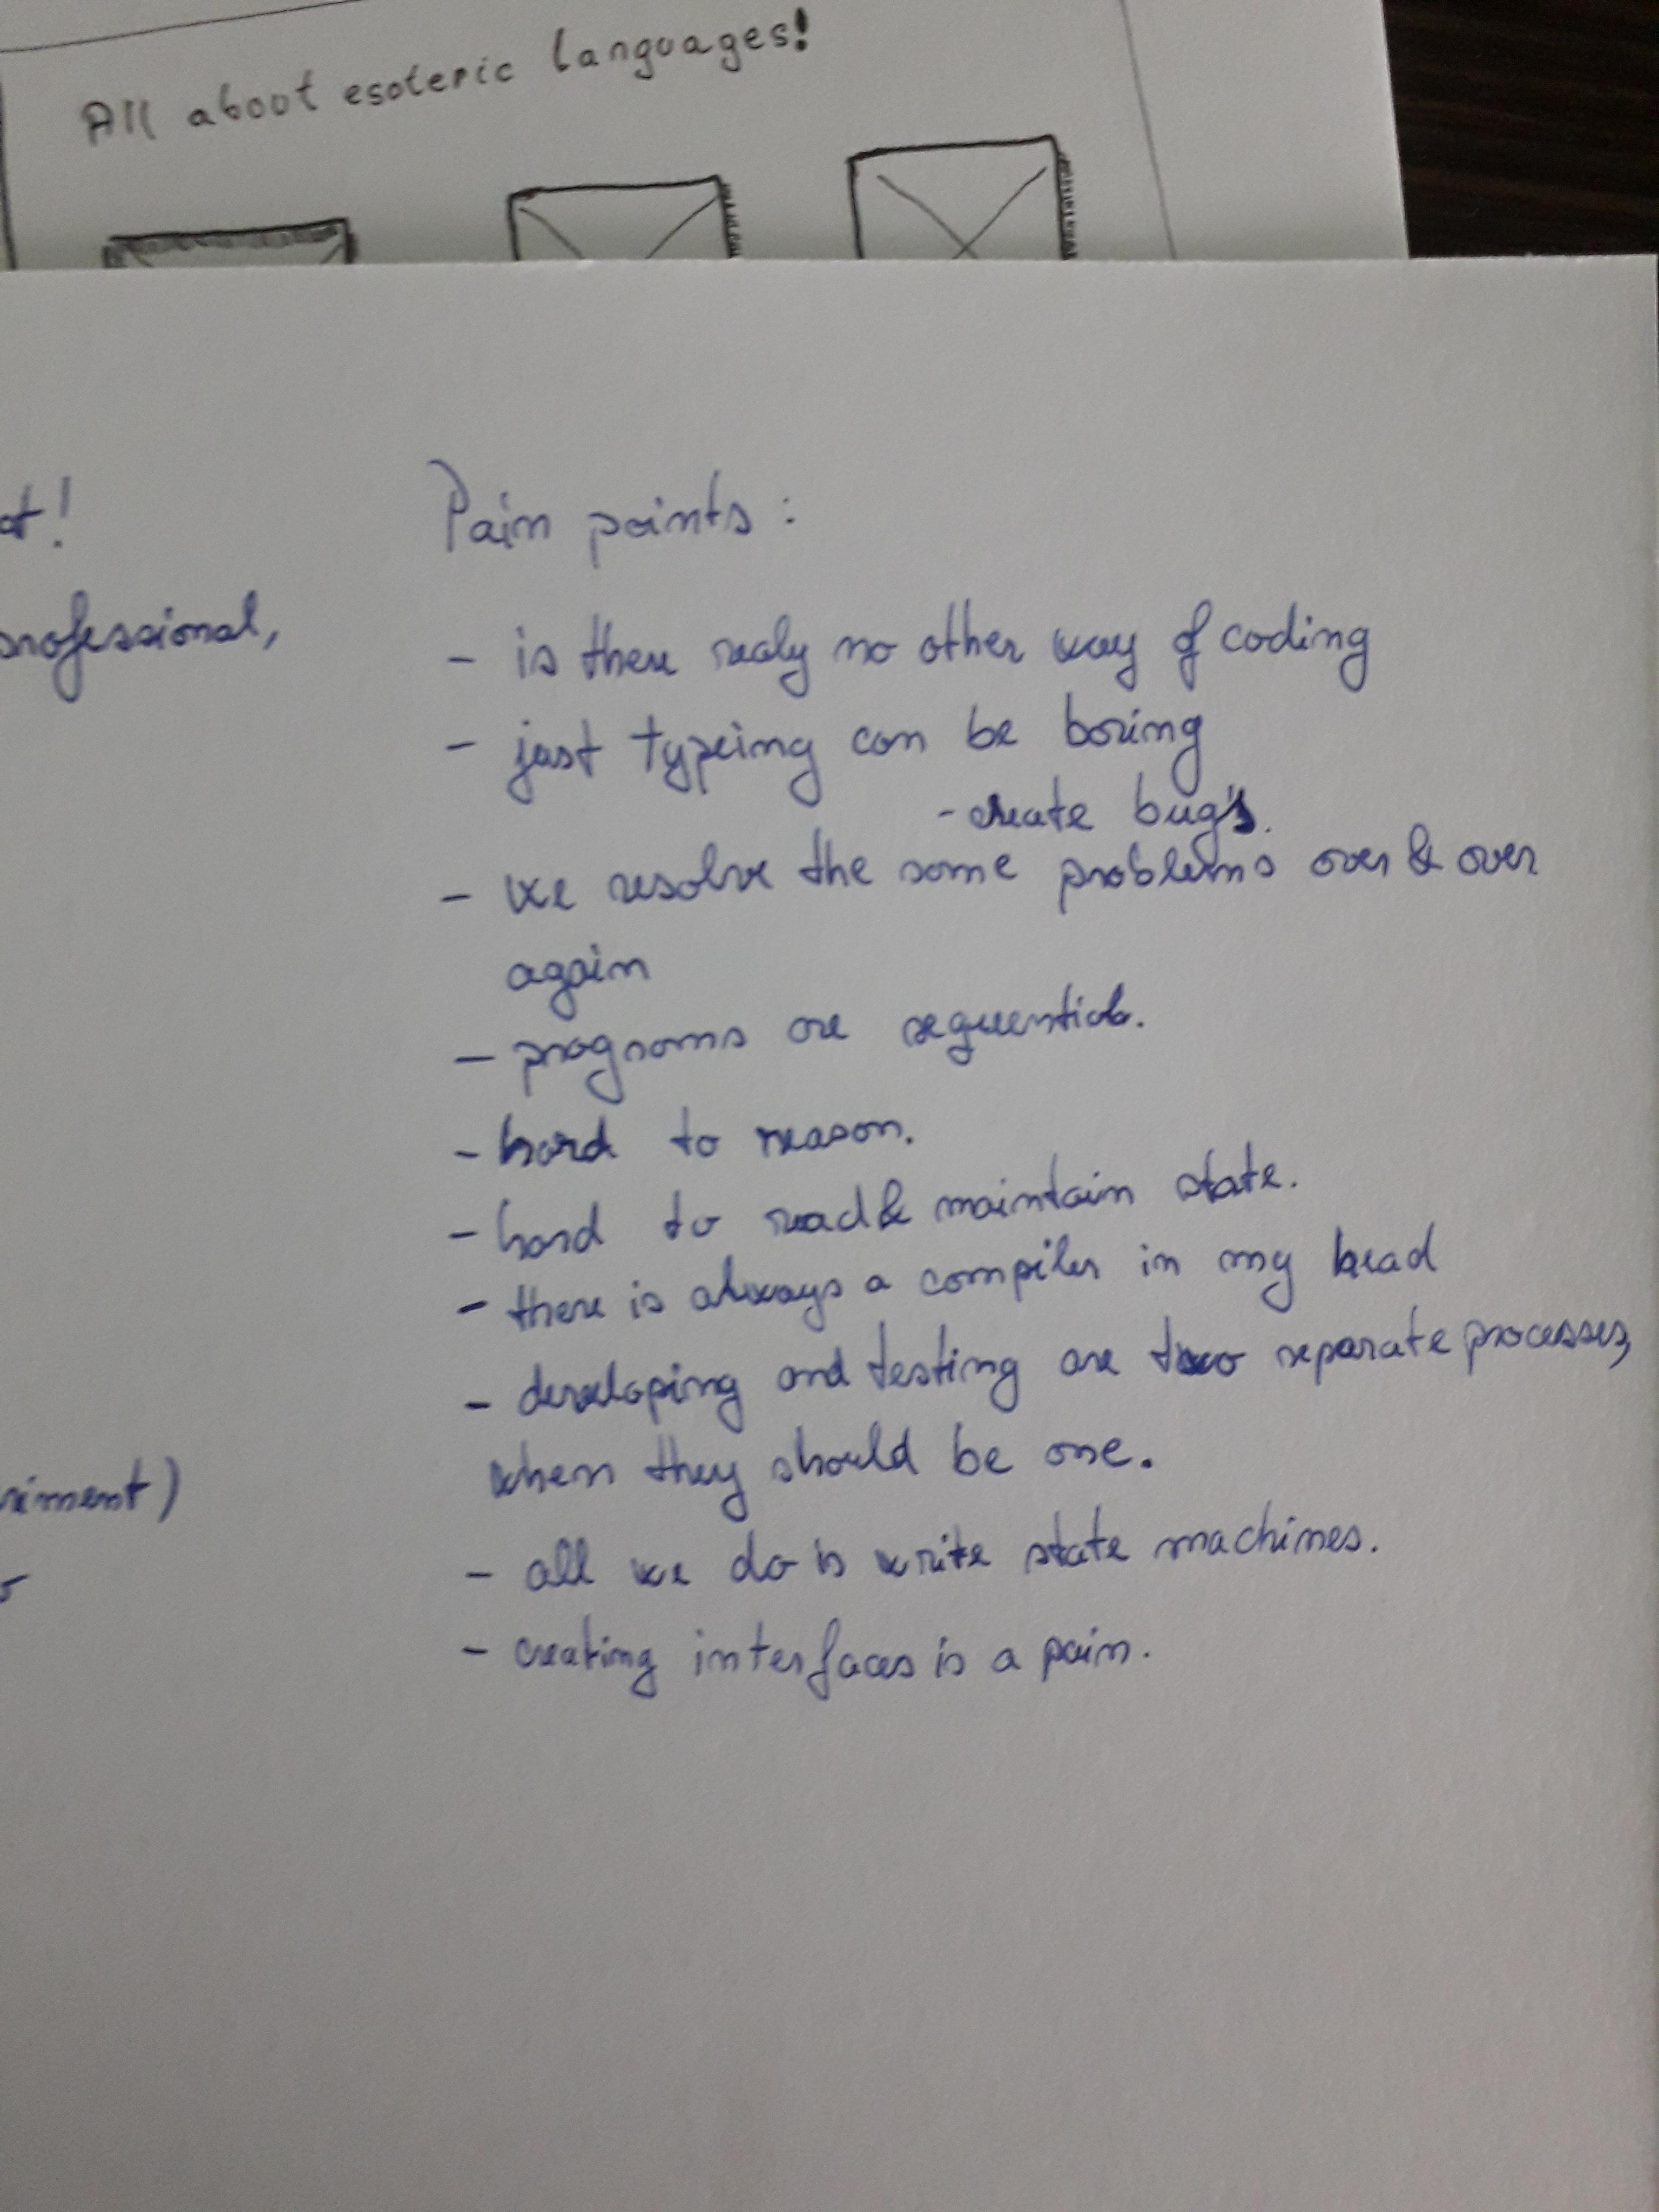 All about esoteric languages!
Pain points:
- is there realy no other way of coding
- just typeing can be boring
- create bug's.
- we resolve the same problems over & over
again
- programs are sequential.
- hard to reason.
- hard to read & maintain state.
- there is always a compiler in my head
- developing and testing are two separate processes,
when they should be one.
- all we do is write state machines.
- creating interfaces is a pain.
professional,